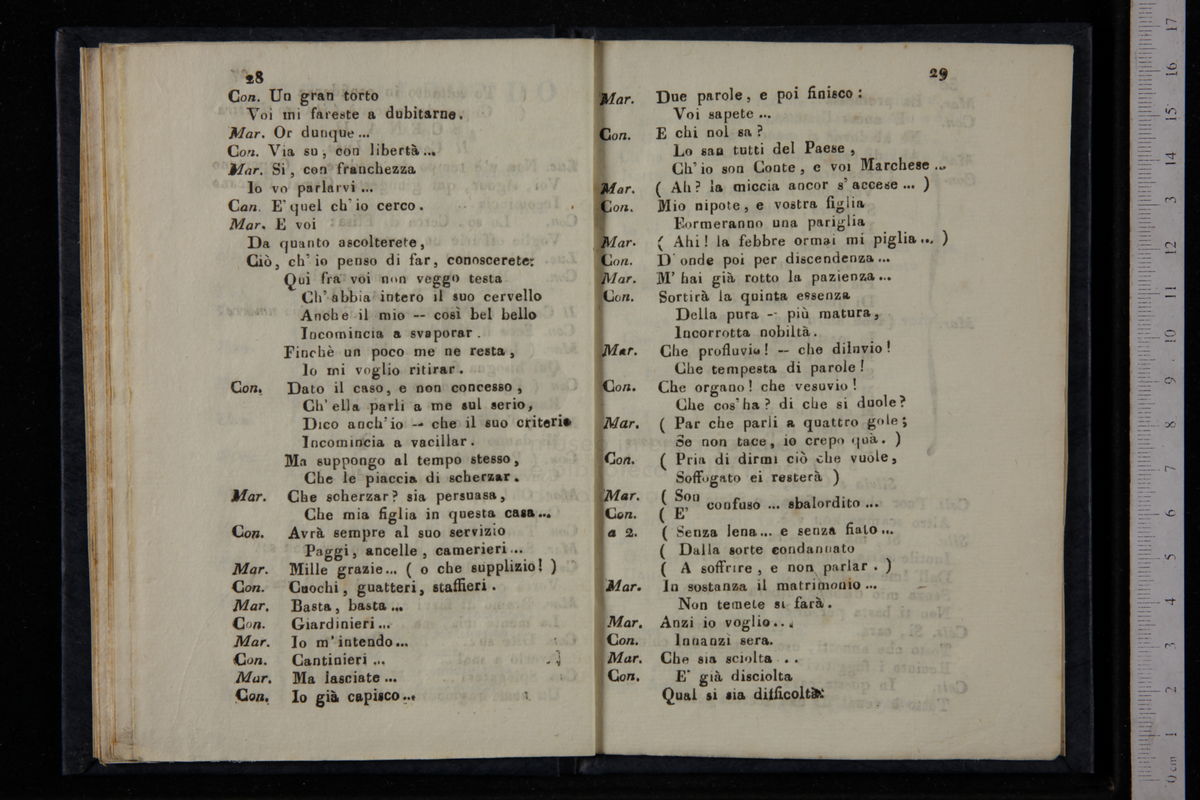 28
Con. Un gran torto
Voi mi fareste a dubitarne.
Mar. Or dunque...
Con. Via su, con libertà...
Mar. Si, con franchezza
Io vo parlarvi...
Can. E' quel ch' io cerco.
Mar. E voi
Da quanto ascolterete,
Ciò, ch' io penso di far, conoscerete:
Quì fra voi non veggo testa
Ch' abbia intero il suo cervello
Anche il mio -- così bel bello
Incomincia a svaporar.
Finchè un poco me ne resta,
Io mi voglio ritirar.
Con. Dato il caso, e non concesso,
Ch' ella parli a me sul serio,
Dico anch' io -- che il suo criterio
Incomincia a vacillar.
Ma suppongo al tempo stesso,
Che le piaccia di scherzar.
Mar. Che scherzar? sia persuasa,
Che mia figlia in questa casa...
Con. Avrà sempre al suo servizio
Paggi, ancelle, camerieri...
Mar. Mille grazie... ( o che supplizio! )
Con. Cuochi, guatteri, staffieri.
Mar. Basta, basta...
Con. Giardinieri...
Mar. Io m' intendo...
Con. Cantinieri...
Mar. Ma lasciate...
Con. Io già capisco...
29
Mar. Due parole, e poi finisco:
Voi sapete...
Con. E chi nol sa?
Lo san tutti del Paese,
Ch' io son Conte, e voi Marchese...
Mar. ( Ah? la miccia ancor s' accese... )
Con. Mio nipote, e vostra figlia
Formeranno una pariglia
Mar. ( Ahi! la febbre ormai mi piglia... )
Con. D' onde poi per discendenza...
Mar. M' hai già rotto la pazienza...
Con. Sortirà la quinta essenza
Della pura -- più matura,
Incorrotta nobiltà.
Mar. Che profluvio! -- che diluvio!
Che tempesta di parole!
Con. Che organo! che vesuvio!
Che cos' ha? di che si duole?
Mar. ( Par che parli a quattro gole;
Se non tace, io crepo quà. )
Con. ( Pria di dirmi ciò che vuole,
Soffogato ei resterà )
Mar. ( Son
confuso ... sbalordito ...
Con. ( E'
a 2. ( Senza lena... e senza fiato...
( Dalla sorte condannato
( A soffrire, e non parlar. )
Mar. In sostanza il matrimonio...
Non temete si farà.
Mar. Anzi io voglio...
Con. Innanzi sera.
Mar. Che sia sciolta . .
Con. E' già disciolta
Qual si sia difficoltà:
0 cm 1 2 3 4 5 6 7 8 9 10 11 12 3 14 15 16 17